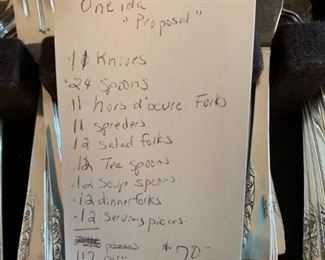 Oneida
"Proposal"
.11 Knives
.24 Spoons
.11 hors d'œuvre Forks
11 spreders
.12 Salad forks
.12 Tea spoons
.12 Soup spoons
.12 dinner forks
.12 serving pieces.
$70-